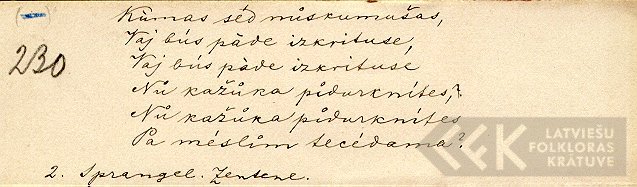 230
Kūmas sēd nůskumušas,
Vaj būs pāde izkrituse,
Vaj būs pāde izkrituse
Nů kažůka pīdurknītes,?
Nů kažůka pīdurknītes
Pa mēslim tecēdama?
2. Sprangel. Zentene.
LATVIEŠU
FOLKLORAS
KRĀTUVE